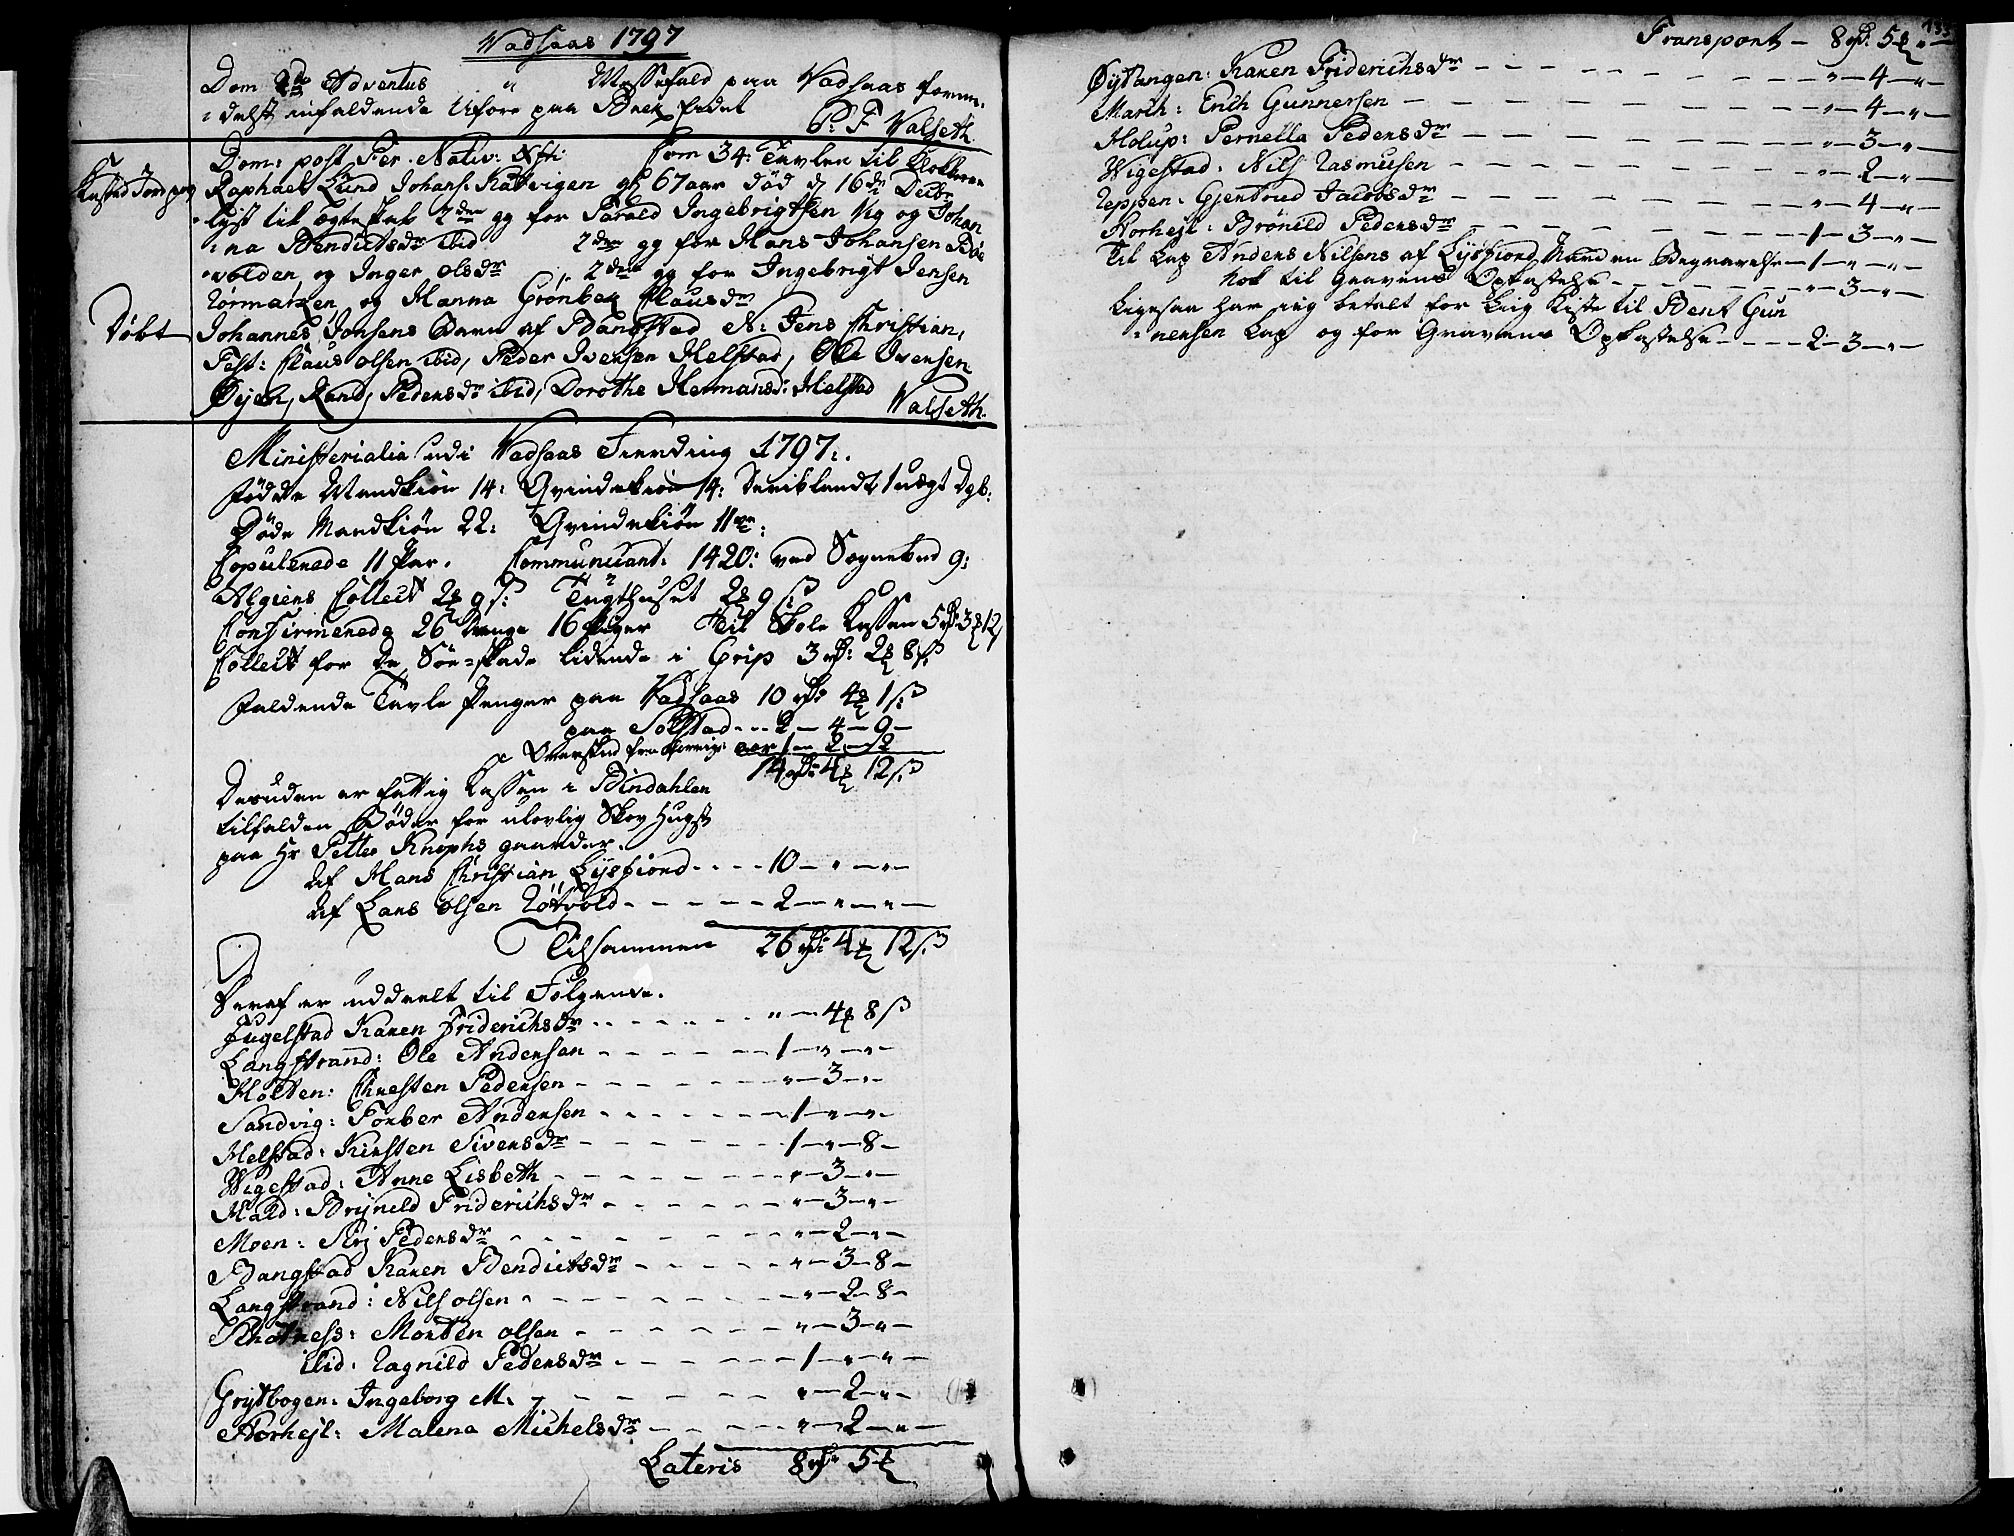 Vadsaas 1797
Dom 2da Adventus " Messefald paa Vadsaas formę-
delst infaldende Uføre paa
P: F Valseth
Dom: post Fer. Nativ: Xsti Com 34: Tavlen til Klokkeren
Kasted Jord paa Raphael Lund Johans. Kalvigen gl 67 aar død d 16de Decbr
lyst til Egteskab 2den gg for Parald Ingebrigtsen Vig og Johan
na Bendictsdr ibid 2den gg for Hans Johansen Bøe
volden og Inger Olsdr 2den gg for Ingebrigt Jensen
og Hanna Grønbek Clausdr
Døbt Johannes Jonsens Barn af Bangstad N: Jens Christian,
Test: Claus Olsen ibid, Peder Iversen Helstad, Ole Iversen
Øyen, Rand, Pedersdr ibid, Dorothe Hermansd: Helstad
Valseth.
Ministerialia udi Vadsaas Fierding 1797:
fødde Mandkiøn 14: Qvindekiøn 14: 1 uægt Dgb:
Døde Mandkiøn 22: Qvindekiøn 11
Copulerede 11 Par. Communicant: 1420: ved Sognebud 9:
Algiers Collect 2 9 s: Tugthuset 2 9 s
Confirmerede 26 Drenge 16 Piger Til Skole Kassen 5 rd 3 12
Collect for De Søe-skade lidende i Grip 3 rd: 2 8 s
faldende Tavle Penger paa Vadsaas 10 rd 4 1 s
paa Solstad -- 2 - 4 - 9 -
Overskud fra forrige aar 1 - 2 - 2
14 rd 4 12 s
Desuden er fattig Kassen i Bindahlen
tilfalden Bøder for ulovlig Skov Hugst
paa Hr Petter Knophs gaarder.
af Hans Christian Lysfiord - - - - 10 - " - " -
af Lars Olsen - - - - - 2 - " - " -
Tilsammen 26 rd: 4 12 s
Deraf er uddeelt til Følgende.
Fugelstad Karen Friderichsdr - - - - - " - 4 8 s
Langstrand: Ole Andersen - - - - - 1 - " - " -
Holten: Chresten Pedersen - - - - - " - 3 - " -
Sandvig: Torber Andersen - - - - - 1 - " - " -
Helstad: Kirsten Siversdr - - - - - 1 - " - 8 -
Wigestad: Anne Lisbeth - - - - - " - 3 - " -
Hald: Brynild Friderichsdr - - - - - " - 3 - " -
Moen: Siri Pedersdr - - - - - " - 2 - " -
Bangstad Karen Bendictsdr - - - - - " - 3 - 8 -
Langstrand: Nils Olsen - - - - - " - 2 - 8 -
Morten Olsen - - - - - " - 3 - " -
ibid: Ragnild Pedersdr - - - - - 1 - " - " -
Grytbogen: Ingeborg M. - - - - - " - 2 - " -
Horhejl: Malena Michelsdr - - - - - " - 2 - " -
Lateris 8 rd 5
Transport - 8 rd: 5 " -
Øytangen: Karen Friderichsdr - - - - - " - 4 - " -
Marth: Erich Gunnersen - - - - - " - 4 - " -
Holup: Pernella Pedersdr - - - - - " - 3 - " -
Wigestad: Nils Rasmusen - - - - - " - 2 - " -
Reppen: Gjertrud Jacobsdr - - - - - " - 4 - " -
Horhejl: Brønild Pedersdr - - - - - 1 - 3 - " -
Til Lap Anders Nilsens af Lysfiord Begravelse - 1 - " - " -
Nok til Gravens Opkastelse - - - - - " - 3 - " -
Ligesaa har jeg betalt for Liig Kiste til Bent Gun
nersen Lap og for Gravens Opkastelse - - - - 2 - 3 - " -